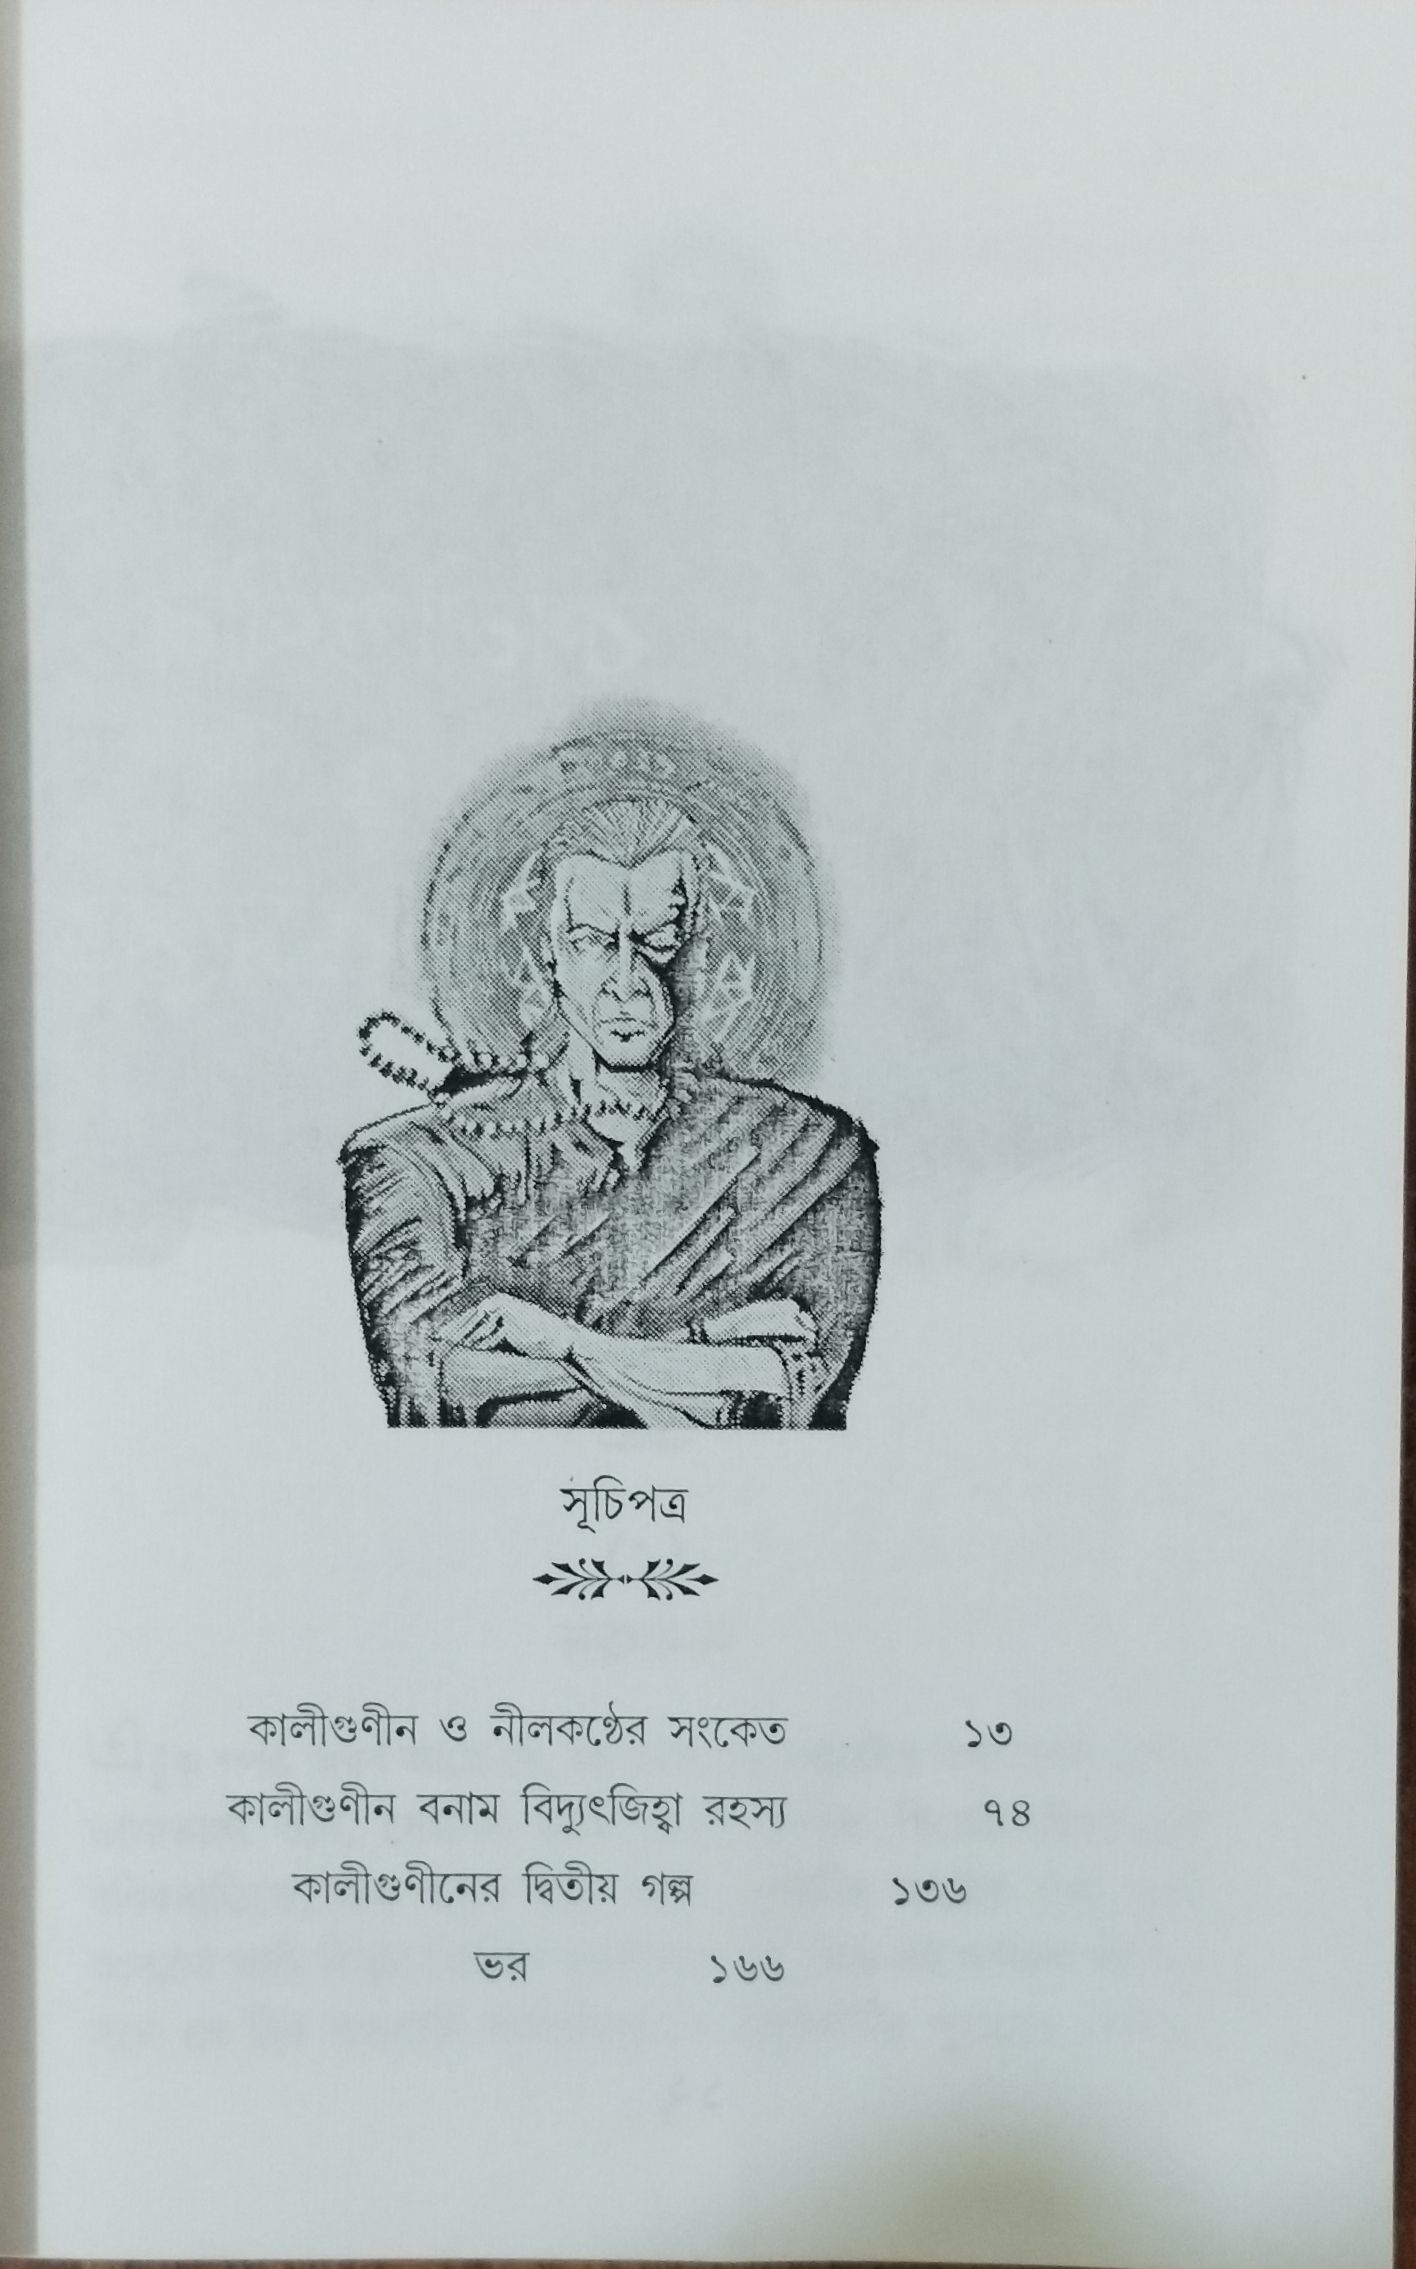 সূচিপত্র
কালীগুণীন ও নীলকণ্ঠের সংকেত ১৩
কালীগুণীন বনাম বিদ্যুৎজিহ্বা রহস্য ৭৪
কালীগুণীনের দ্বিতীয় গল্প ১৩৬
ভর ১৬৬